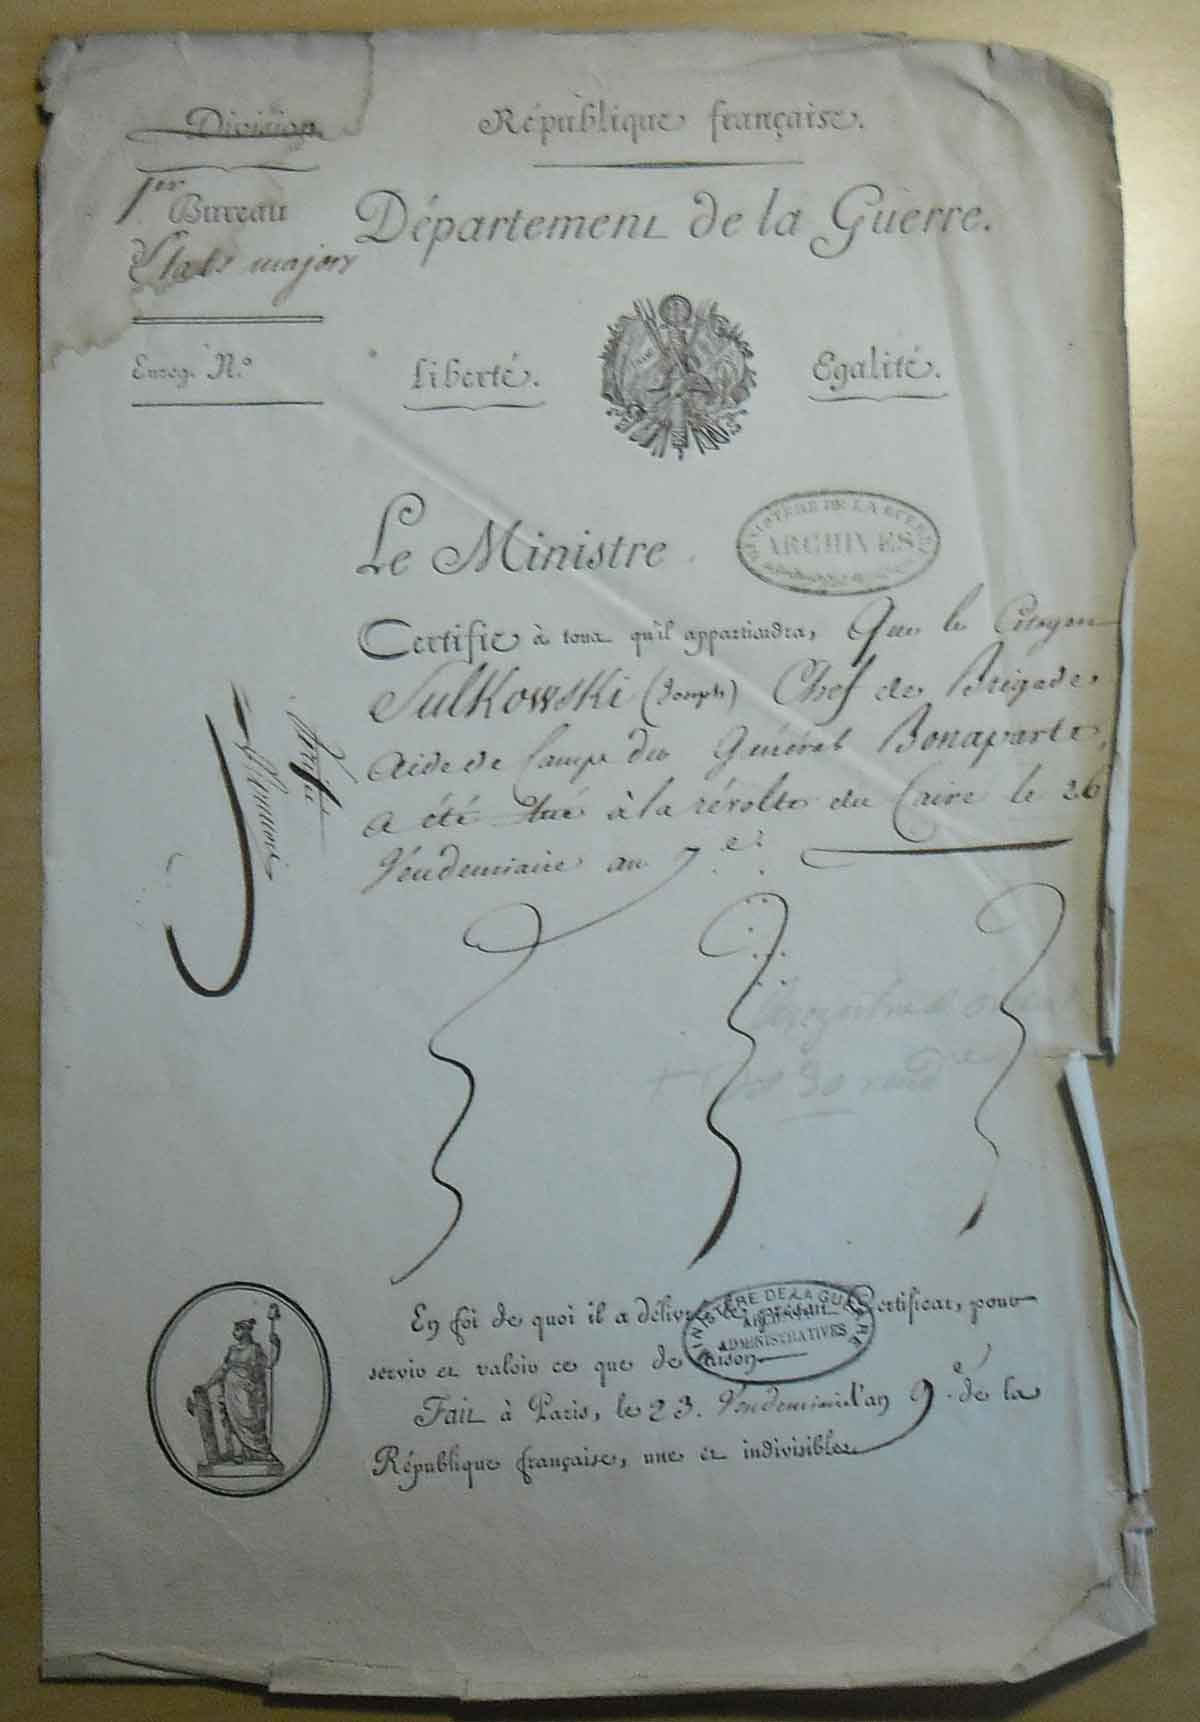 Division
République française.
1er Bureau
Département de la Guerre.
États majors
Enreg. N.°
Liberté.
Egalité.
Le Ministre
MINISTÈRE DE LA GUERRE
ARCHIVES
Certifie à tous qu'il appartiendra, Que le Citoyen
Sulkowski (Joseph) Chef de Brigade
Aide de Camp du Général Bonaparte,
a été tué à la révolte du Caire le 26
Vendemiaire an 7.e
En foi de quoi il a délivré le présent Certificat, pour
MINISTÈRE DE LA GUERRE
ARCHIVES
ADMINISTRATIVES
servir et valoir ce que de raison
Fait à Paris, le 23. Vendemiaire l'an 9.e de la
République française, une et indivisible